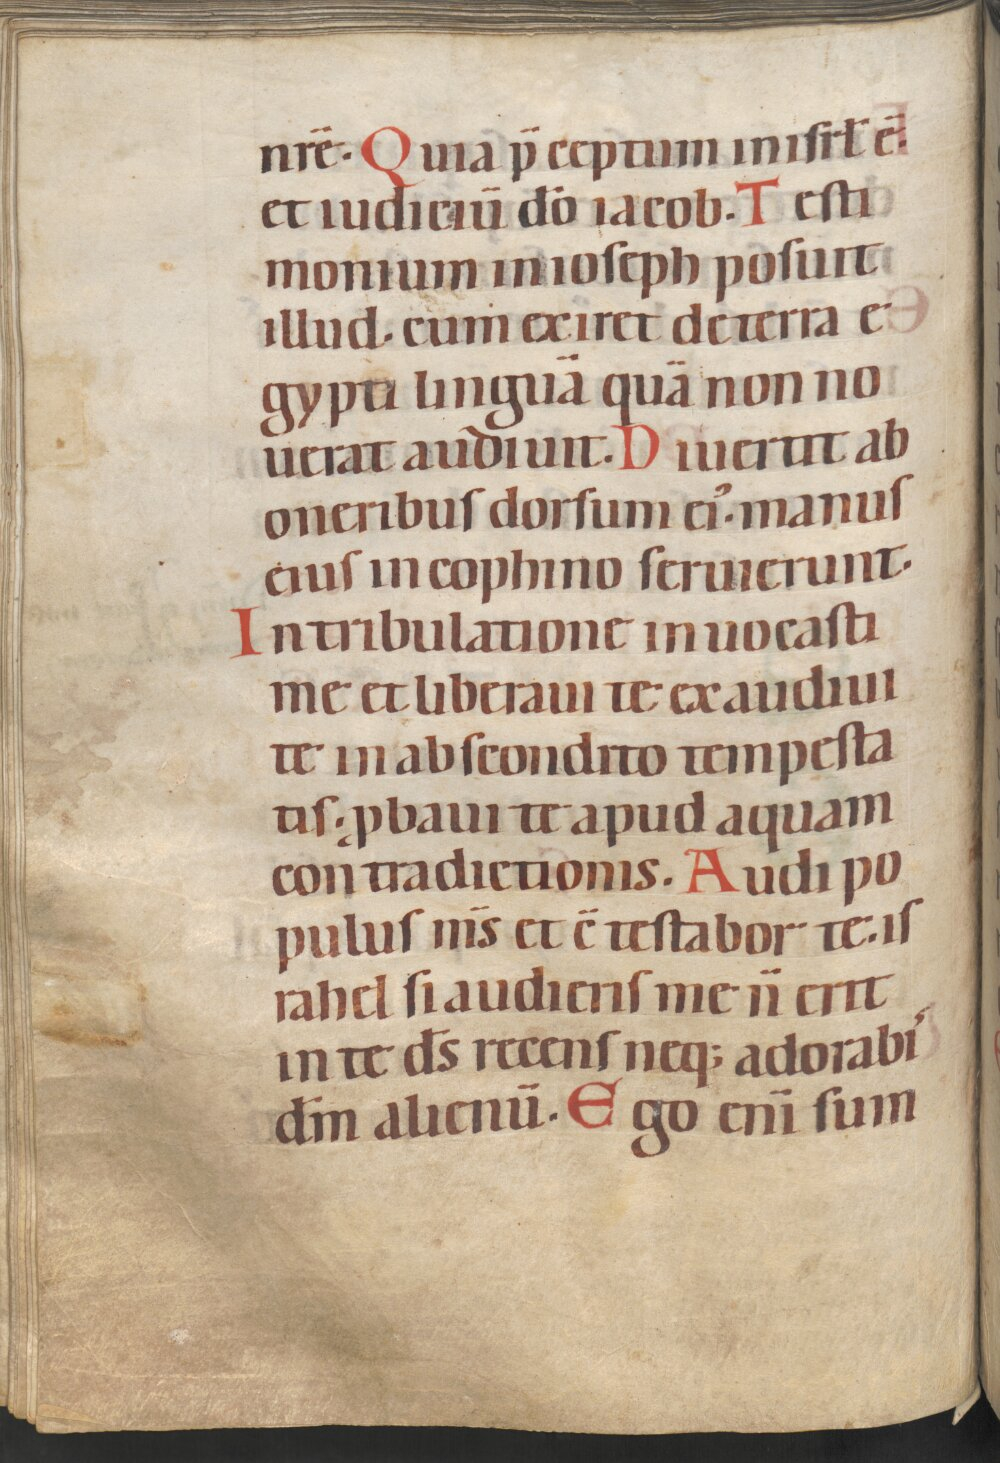 nrē. Quia p̄ceptum in isrł ē.
et iudiciū dō iacob. Testi
monium in ioseph posuit
illud. cum exiret de terra e
gypti linguā quā non no
uerat audiuit. Diuertit ab
oneribus dorsum ei᾿. manus
eius in cophino seruierunt.
In tribulatione inuocasti
me et liberaui te exaudiui
te in abscondito tempesta
tis. ꝓbaui te apud aquam
contradictionis. Audi po
pulus m̄s et c̄testabor te. is
rahel si audieris me n̄ erit
in te d̄s recens neq; adorabi᾿
d̄m alienū. Ego eni̅ sum